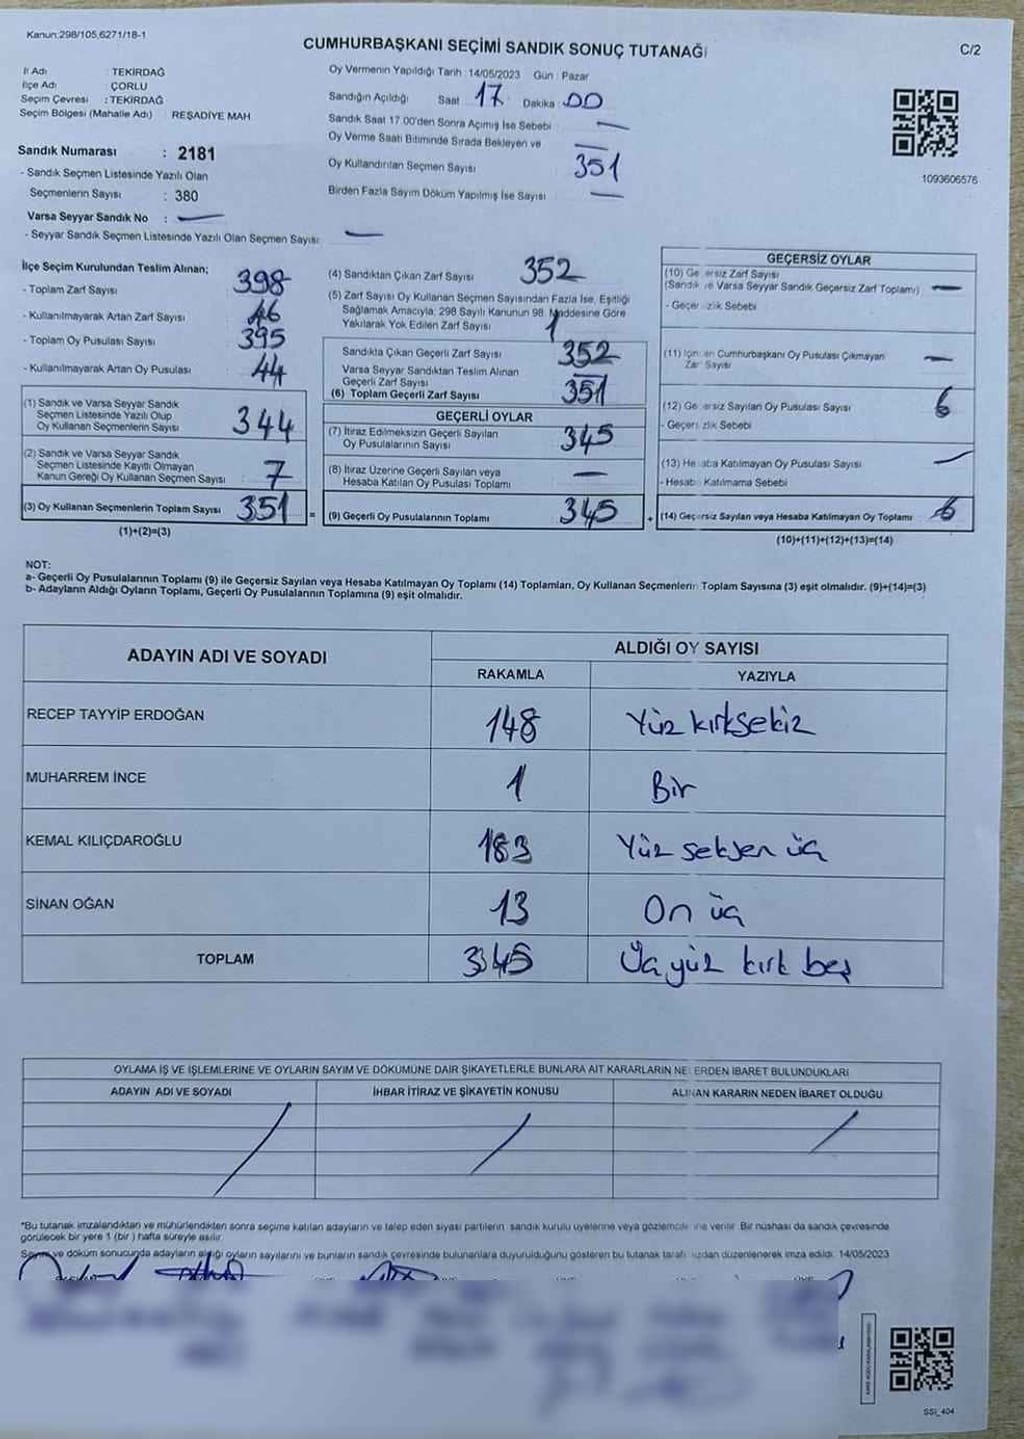 Kanun:298/105,6271/18-1
CUMHURBAŞKANI SEÇİMİ SANDIK SONUÇ TUTANAĞI
C/2
İl Adı : TEKİRDAĞ
İlçe Adı : ÇORLU
Seçim Çevresi : TEKİRDAĞ
Seçim Bölgesi (Mahalle Adı) REŞADİYE MAH
Oy Vermenin Yapıldığı Tarih :14/05/2023 Gün : Pazar
Sandığın Açıldığı Saat 17 Dakika : 00
Sandık Saat 17.00'den Sonra Açımış İse Sebebi —
Oy Verme Saati Bitiminde Sırada Bekleyen ve —
Oy Kullandırılan Seçmen Sayısı 351
Birden Fazla Sayım Döküm Yapılmış İse Sayısı —
1093606576
Sandık Numarası : 2181
- Sandık Seçmen Listesinde Yazılı Olan
Seçmenlerin Sayısı : 380
Varsa Seyyar Sandık No : —
- Seyyar Sandık Seçmen Listesinde Yazılı Olan Seçmen Sayısı: —
İlçe Seçim Kurulundan Teslim Alınan;
- Toplam Zarf Sayısı 398
- Kullanılmayarak Artan Zarf Sayısı 46
- Toplam Oy Pusulası Sayısı 395
- Kullanılmayarak Artan Oy Pusulası 44
(1) Sandık ve Varsa Seyyar Sandık
Seçmen Listesinde Yazılı Olup
Oy Kullanan Seçmenlerin Sayısı 344
(2) Sandık ve Varsa Seyyar Sandık
Seçmen Listesinde Kayıtlı Olmayan
Kanun Gereği Oy Kullanan Seçmen Sayısı 7
(3) Oy Kullanan Seçmenlerin Toplam Sayısı 351 =
(1)+(2)=(3)
(4) Sandıktan Çıkan Zarf Sayısı 352
(5) Zarf Sayısı Oy Kullanan Seçmen Sayısından Fazla İse, Eşitliği
Sağlamak Amacıyla, 298 Sayılı Kanunun 98. Maddesine Göre
Yakılarak Yok Edilen Zarf Sayısı 1
Sandıkta Çıkan Geçerli Zarf Sayısı 352
Varsa Seyyar Sandıktan Teslim Alınan
Geçerli Zarf Sayısı —
(6) Toplam Geçerli Zarf Sayısı 351
GEÇERLİ OYLAR
(7) İtiraz Edilmeksizin Geçerli Sayılan
Oy Pusulalarının Sayısı 345
(8) İtiraz Üzerine Geçerli Sayılan veya
Hesaba Katılan Oy Pusulası Toplamı —
(9) Geçerli Oy Pusulalarının Toplamı 345 +
GEÇERSİZ OYLAR
(10) Ge ersiz Zarf Sayısı
(Sandık ve Varsa Seyyar Sandık Geçersiz Zarf Toplamı) —
- Geçer zlik Sebebi
(11) İçin en Cumhurbaşkanı Oy Pusulası Çıkmayan
Zarf Sayısı —
(12) Ge ersiz Sayılan Oy Pusulası Sayısı 6
- Geçer zlik Sebebi
(13) Hesaba Katılmayan Oy Pusulası Sayısı —
- Hesaba Katılmama Sebebi
(14) Geçersiz Sayılan veya Hesaba Katılmayan Oy Toplamı 6
(10)+(11)+(12)+(13)=(14)
NOT:
a- Geçerli Oy Pusulalarının Toplamı (9) ile Geçersiz Sayılan veya Hesaba Katılmayan Oy Toplamı (14) Toplamları, Oy Kullanan Seçmenlerin Toplam Sayısına (3) eşit olmalıdır. (9)+(14)=(3)
b- Adayların Aldığı Oyların Toplamı, Geçerli Oy Pusulalarının Toplamına (9) eşit olmalıdır.
ADAYIN ADI VE SOYADI
ALDIĞI OY SAYISI
RAKAMLA YAZIYLA
RECEP TAYYİP ERDOĞAN 148 Yüz kırksekiz
MUHARREM İNCE 1 Bir
KEMAL KILIÇDAROĞLU 183 Yüz seksen üç
SİNAN OĞAN 13 On üç
TOPLAM 345 Üç yüz kırk beş
OYLAMA İŞ VE İŞLEMLERİNE VE OYLARIN SAYIM VE DÖKÜMÜNE DAİR ŞİKAYETLERLE BUNLARA AİT KARARLARIN NELERDEN İBARET BULUNDUKLARI
ADAYIN ADI VE SOYADI İHBAR İTİRAZ VE ŞİKAYETİN KONUSU ALINAN KARARIN NEDEN İBARET OLDUĞU
*Bu tutanak imzalandıktan ve mühürlendikten sonra seçime katılan adayların ve talep eden siyasi partilerin sandık kurulu üyelerine veya gözlemcilerine verilir. Bir nüshası da sandık çevresinde
görülecek bir yere 1 (bir) hafta süreyle asılır.
Sayım ve döküm sonucunda adayların aldığı oyların sayılarını ve bunların sandık çevresinde bulunanlara duyurulduğunu gösteren bu tutanak tarafımızdan düzenlenerek imza edildi. 14/05/2023
SSİ_404